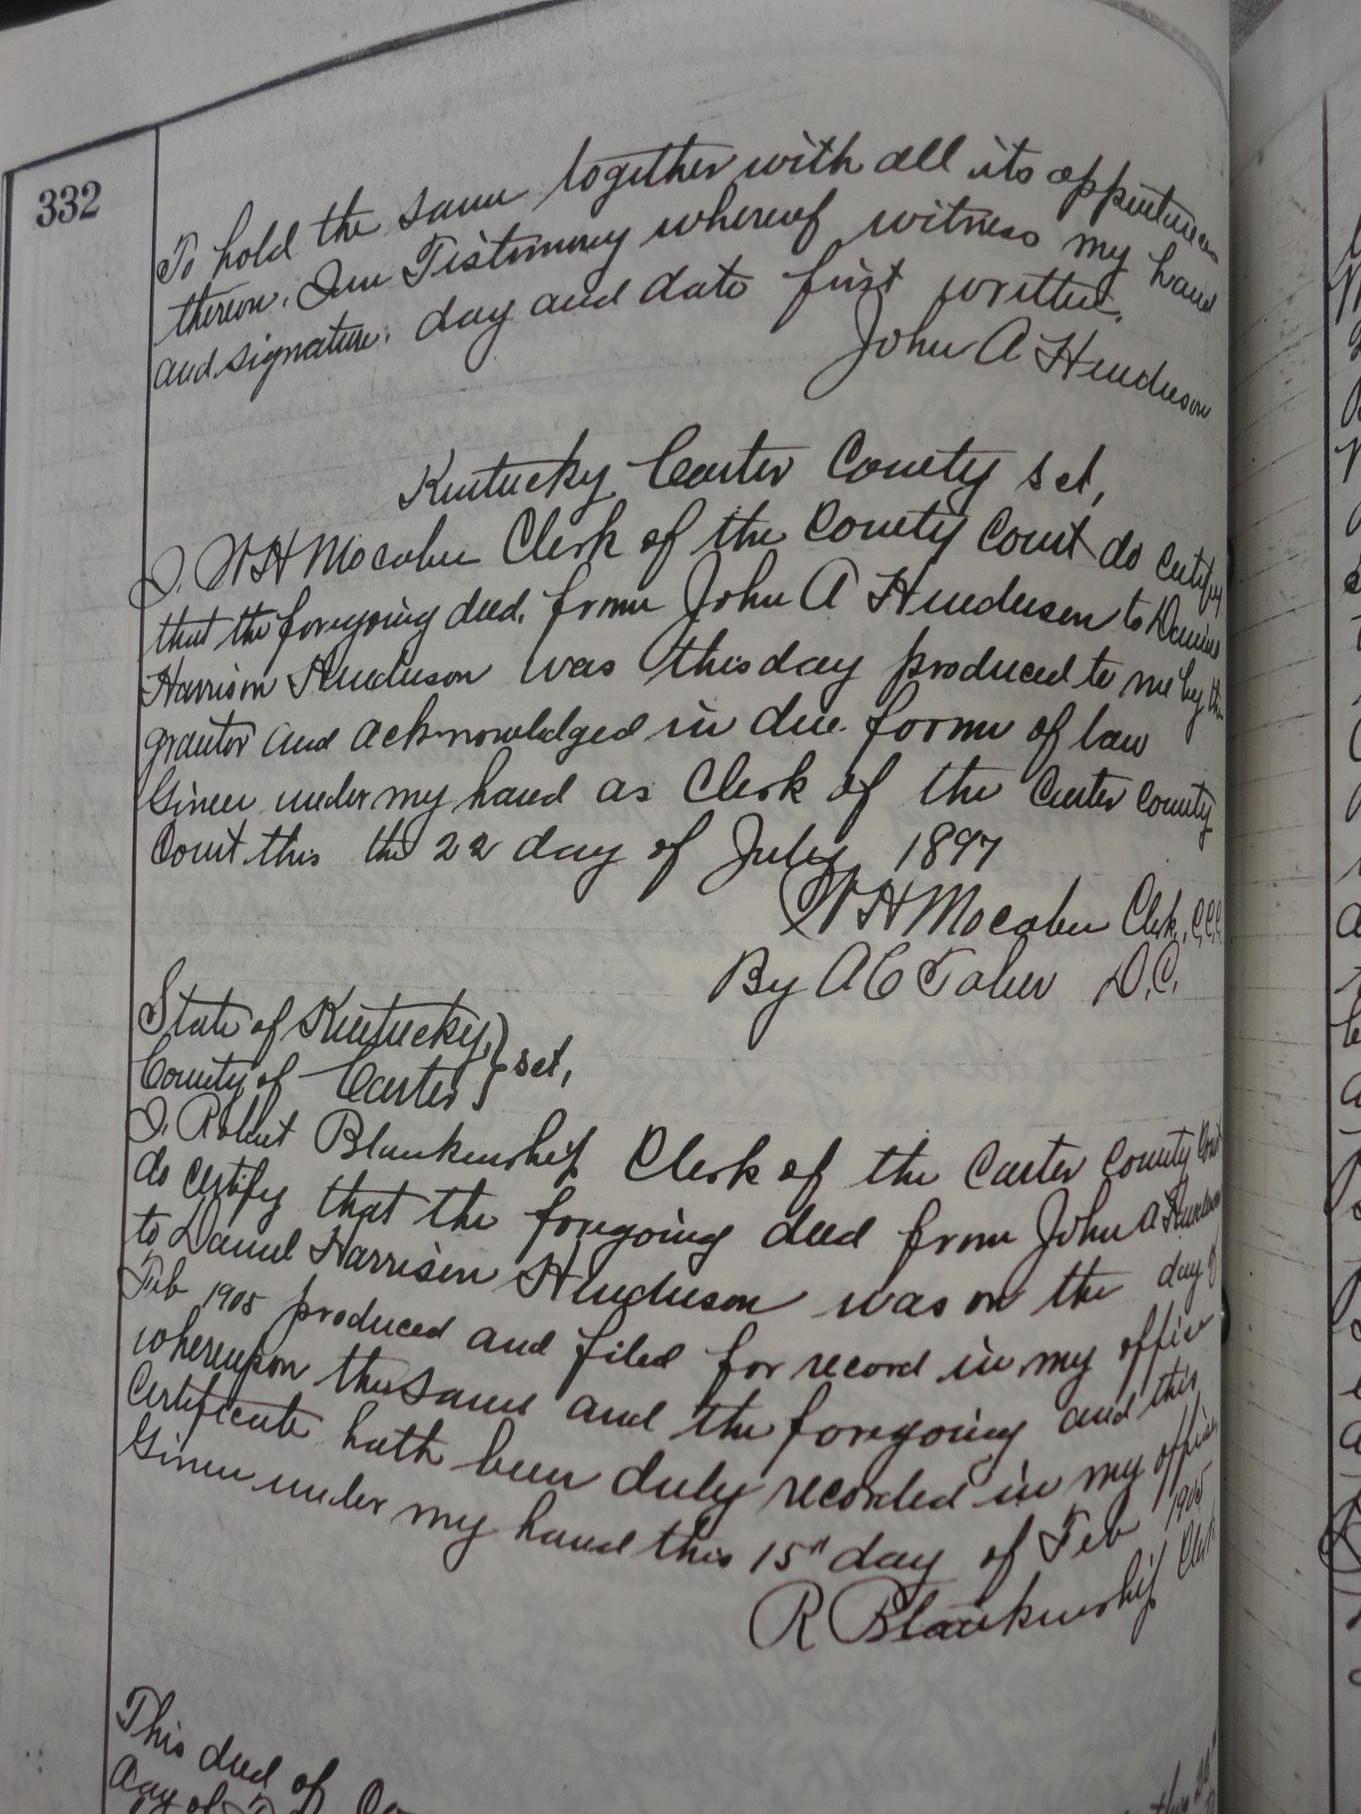 332
To hold the same together with all its appurtenances
thereon. In Testimony whereof witness my hand
and signature. day and date first written.
John A Henderson
Kentucky Carter County sct,
I. W H Mocabee Clerk of the County Court do certify
that the foregoing deed. from John A Henderson to Daniel
Harrison Henderson was this day produced to me by the
grantor and acknowledged in due form of law
Given under my hand as Clerk of the Carter County
Court this the 22 day of July 1897
W H Mocabee Clerk, C.C.C.
By A C Taber D.C.
State of Kentucky,
County of Carter } sct,
I. Robert Blankenship Clerk of the Carter County Court
do certify that the foregoing deed from John A Henderson
to Daniel Harrison Henderson was on the day of
Feb 1905 produced and filed for record in my office
whereupon the same and the foregoing and this
Certificate hath been duly recorded in my office
Given under my hand this 15" day of Feb 1905
R Blankenship Clerk
This deed of
day of